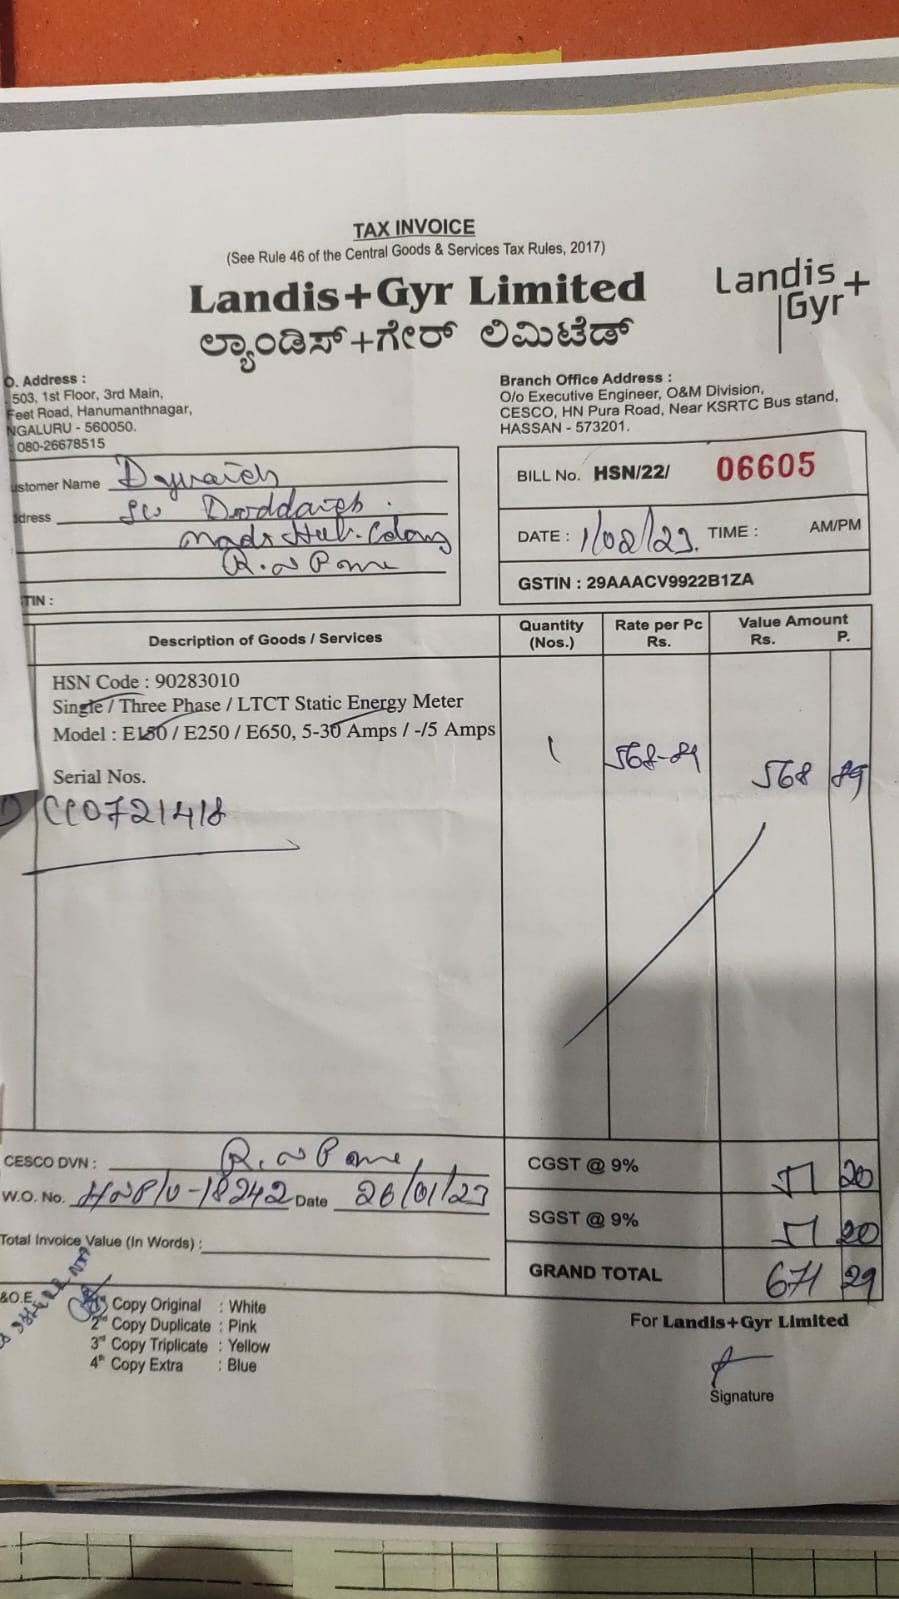 TAX INVOICE
(See Rule 46 of the Central Goods & Services Tax Rules, 2017)
Landis+Gyr Limited
ಲ್ಯಾಂಡಿಸ್+ಗೇರ್ ಲಿಮಿಟೆಡ್
Landis+
Gyr
O. Address :
503, 1st Floor, 3rd Main,
Feet Road, Hanumanthnagar,
NGALURU - 560050.
: 080-26678515
Branch Office Address :
O/o Executive Engineer, O&M Division,
CESCO, HN Pura Road, Near KSRTC Bus stand,
HASSAN - 573201.
ustomer Name
dress
TIN :
BILL No. HSN/22/ 06605
DATE : 1/02/23. TIME : AM/PM
GSTIN : 29AAACV9922B1ZA
Description of Goods / Services
Quantity (Nos.)
Rate per Pc Rs.
Value Amount Rs. P.
HSN Code : 90283010
Single / Three Phase / LTCT Static Energy Meter
Model : E150 / E250 / E650, 5-30 Amps / -/5 Amps
1 568-89 568 89
Serial Nos.
CC0721418
CESCO DVN :
W.O. No. HNP/U-18242 Date 26/01/23
Total Invoice Value (In Words) :
CGST @ 9% 51 20
SGST @ 9% 51 20
GRAND TOTAL 671 29
&O.E.
1st Copy Original : White
2nd Copy Duplicate : Pink
3rd Copy Triplicate : Yellow
4th Copy Extra : Blue
For Landis+Gyr Limited
Signature